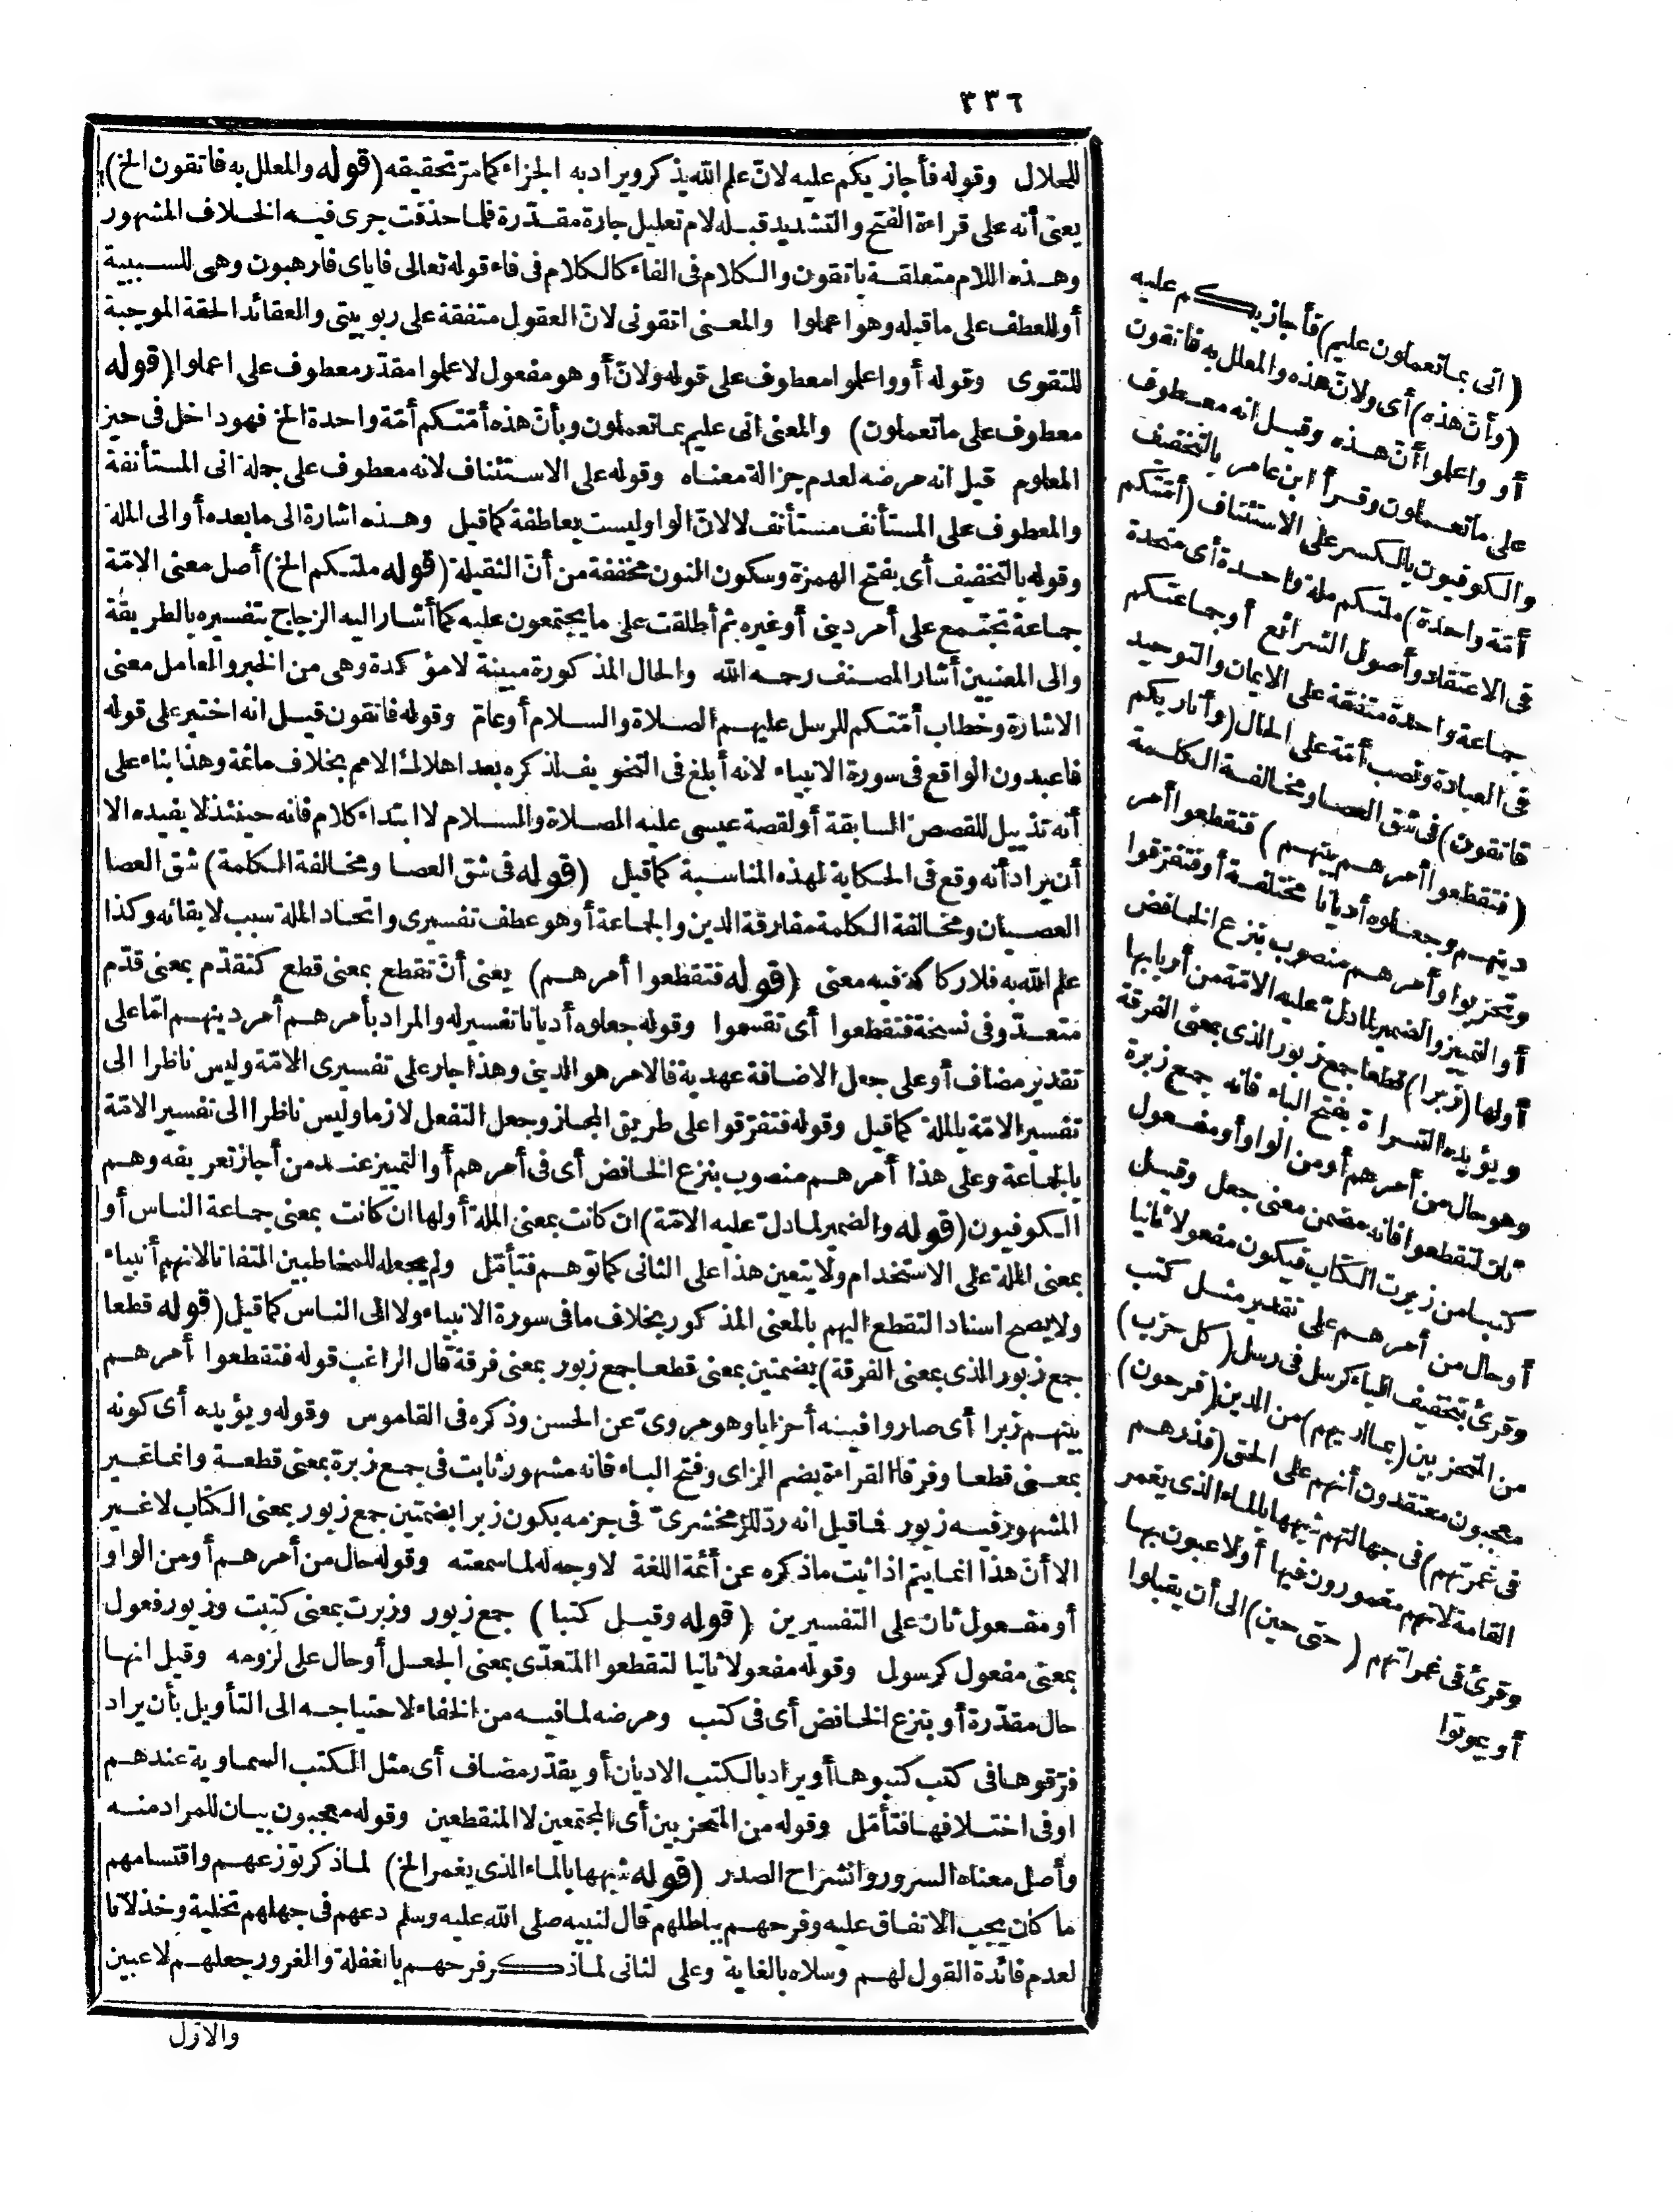 ٣٣٦
للحلال وقوله فأجازيكم عليه لانّ علم الله يذكر ويراد به الجزاء كما مرّ تحقيقه (قوله والمعلل به فاتقون الخ)
يعنى أنه على قراءة الفتح والتشديد قبله لام تعليل جارة مقدّرة فلما حذفت جرى فيه الخلاف المشهور
وهذه اللام متعلقة باتقون والكلام فى الفاء كالكلام فى فاء قوله تعالى فاياى فارهبون وهى للسببية
أو للعطف على ما قبله وهو اعملوا والمعنى اتقونى لانّ العقول متفقة على ربوبيتى والعقائد الحقة الموجبة
للتقوى وقوله أو واعلموا معطوف على قوله ولانّ أو هو مفعول لاعلموا مقدّر معطوف على اعملوا (قوله
معطوف على ما تعملون) والمعنى انى عليم بما تعملون وبأنّ هذه أمّتكم أمّة واحدة الخ فهو داخل فى حيز
المعلوم قيل انه مرضه لعدم جزالة معناه وقوله على الاستئناف لانه معطوف على جملة انى المستأنفة
والمعطوف على المستأنف مستأنف لا لانّ الواو ليست بعاطفة كما قيل وهذه اشارة الى ما بعده أو الى الملة
وقوله بالتخفيف أى بفتح الهمزة وسكون النون مخففة من أنّ الثقيلة (قوله ملتكم الخ) أصل معنى الامّة
جماعة تجتمع على أمر دينى أو غيره ثم أطلقت على ما يجتمعون عليه كما أشار اليه الزجاج بتفسيره بالطريقة
والى المعنيين أشار المصنف رحمه الله والحال المذكورة مبينة لا مؤكدة وهى من الخبر والعامل معنى
الاشارة وخطاب أمّتكم للرسل عليهم الصلاة والسلام أو عامّ وقوله فاتقون قيل انه اختير على قوله
فاعبدون الواقع فى سورة الانبياء لانه أبلغ فى التخويف لذكره بعد اهلاك الامم بخلاف ما ثمة وهذا بناء على
أنه تذييل للقصص السابقة أو لقصة عيسى عليه الصلاة والسلام لا ابتداء كلام فانه حينئذ لا يفيده الا
أن يراد أنه وقع فى الحكاية لهذه المناسبة كما قيل (قوله فى شق العصا ومخالفة الكلمة) شق العصا
العصيان ومخالفة الكلمة مفارقة الدين والجماعة أو هو عطف تفسيرى واتحاد الملة سبب لابقائه وكذا
علم الله به فلا ركاكة فيه معنى (قوله فتقطعوا أمرهم) يعنى أنّ تقطع بمعنى قطع كتقدّم بمعنى قدّم
متعدّ وفى نسخة فتقطعوا أى تقسموا وقوله جعلوه أديانا تفسير له والمراد بأمرهم أمر دينهم امّا على
تقدير مضاف أو على جعل الاضافة عهدية فالامر هو الدينى وهذا جار على تفسيرى الامّة وليس ناظرا الى
تفسير الامّة بالملة كما قيل وقوله فتفرّقوا على طريق المجاز وجعل التفعل لازما وليس ناظرا الى تفسير الامّة
بالجماعة وعلى هذا أمرهم منصوب بنزع الخافض أى فى أمرهم أو التمييز عند من أجاز تعريفه وهم
الكوفيون (قوله والضمير لما دلّ عليه الامّة) ان كانت بمعنى الملة أو لها ان كانت بمعنى جماعة الناس أو
بمعنى الملة على الاستخدام ولا يتعين هذا على الثانى كما توهم فتأمّل ولم يجعله للمخاطبين التفاتا لانهم أنبياء
ولا يصح اسناد التقطع اليهم بالمعنى المذكور بخلاف ما فى سورة الانبياء ولا الى الناس كما قيل (قوله قطعا
جمع زبور الذى بمعنى الفرقة) بضمتين بمعنى قطعا جمع زبور بمعنى فرقة قال الراغب قوله فتقطعوا أمرهم
بينهم زبرا أى صاروا فيه أحزابا وهو مروىّ عن الحسن وذكره فى القاموس وقوله ويؤيده أى كونه
بمعنى قطعا وفرقا القراءة بضم الزاى وفتح الباء فانه مشهور ثابت فى جمع زبرة بمعنى قطعة وانما غير
المشهور فيه زبور فما قيل انه ردّ للزمخشرىّ فى جزمه بكون زبرا بضمتين جمع زبور بمعنى الكتاب لا غير
الا أنّ هذا انما يتم اذا ثبت ما ذكره عن أئمة اللغة لا وجه له لما سمعته وقوله حال من أمرهم أو من الواو
أو مفعول ثان على التفسيرين (قوله وقيل كتبا) جمع زبور وزبرت بمعنى كتبت وزبور فعول
بمعنى مفعول كرسول وقوله مفعولا ثانيا لتقطعوا المتعدّى بمعنى الجعل أو حال على لزومه وقيل انها
حال مقدّرة أو بنزع الخافض أى فى كتب ومرضه لما فيه من الخفاء لاحتياجه الى التأويل بأن يراد
فرّقوها فى كتب كتبوها أو يراد بالكتب الاديان أو يقدّر مضاف أى مثل الكتب السماوية عندهم
او فى اختلافها فتأمّل وقوله من المتحزبين أى المجتمعين لا المنقطعين وقوله معجبون بيان للمراد منه
وأصل معناه السرور وانشراح الصدر (قوله شبهها بالماء الذى يغمر الخ) لما ذكر توزعهم واقتسامهم
ما كان يجب الاتفاق عليه وفرحهم بباطلهم قال لنبيه صلى الله عليه وسلم دعهم فى جهلهم تخلية وخذلانا
لعدم فائدة القول لهم وسلاه بالغاية وعلى الثانى لما ذكر فرحهم بالغفلة والغرور جعلهم لاعبين
والاوّل
(انى بما تعملون عليم) فأجازيكم عليه
(وأنّ هذه) أى ولانّ هذه والمعلل به فاتقون
أو واعلموا أنّ هذه وقيل انه معطوف
على ما تعملون وقرأ ابن عامر بالتخفيف
والكوفيون بالكسر على الاستئناف (أمّتكم
أمّة واحدة) ملتكم ملة واحدة أى متحدة
فى الاعتقاد وأصول الشرائع أو جماعتكم
جماعة واحدة متفقة على الايمان والتوحيد
فى العبادة ونصب أمّة على الحال (وأنا ربكم
فاتقون) فى شق العصا ومخالفة الكلمة
(فتقطعوا أمرهم بينهم) فتقطعوا أمر
دينهم وجعلوه أديانا مختلفة أو فتفرّقوا
وتحزبوا وأمرهم منصوب بنزع الخافض
أو التمييز والضمير لما دلّ عليه الامّة من أربابها
أو لها (زبرا) قطعا جمع زبور الذى بمعنى الفرقة
ويؤيده القراءة بفتح الباء فانه جمع زبرة
وهو حال من أمرهم أو من الواو أو مفعول
ثان لتقطعوا فانه مضمن معنى جعل وقيل
كتبا من زبرت الكتاب فيكون مفعولا ثانيا
أو حال من أمرهم على تقدير مثل كتب
وقرئ بتخفيف الباء كرسل فى رسل (كل حزب)
من المتحزبين (بما لديهم) من الدين (فرحون)
معجبون معتقدون أنهم على الحق (فذرهم
فى غمرتهم) فى جهالتهم شبهها بالماء الذى يغمر
القامة لانهم مغمورون فيها أو لاعبون بها
وقرئ فى غمراتهم (حتى حين) الى أن يقتلوا
أو يموتوا